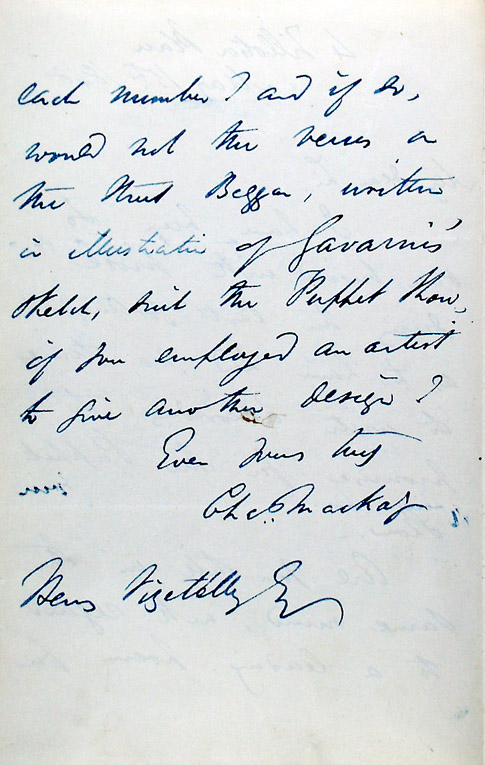 each number? and if so,
would not the verses on
the Street Beggar, written
in illustration of Gavarni's
sketch, suit the Puppet Show,
if you employed an artist
to give another design?
Ever yours truly
Chas. Mackay
Henry Vizetelly Esq